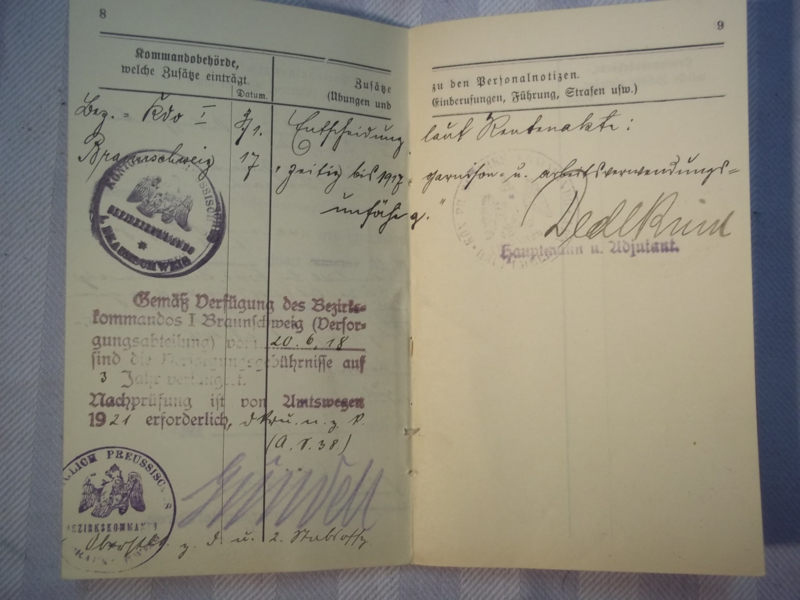 8
Kommandobehörde,
welche Zusätze einträgt.
Datum.
Zusätze
(Übungen und
Bez.-Kdo I
Braunschweig
1.
17
Entscheidung
"zeitig bis 1917
unfähig."
KÖNIGL. PREUSSISCHES
BEZIRKSKOMMANDO
I BRAUNSCHWEIG
Gemäß Verfügung des Bezirks-
kommandos I Braunschweig (Versor-
gungsabteilung) vom 20.6.18
sind die Versorgungsgebührnisse auf
3 Jahr verlängert.
Nachprüfung ist von Amtswegen
1921 erforderlich,
KÖNIGLICH PREUSSISCHES
BEZIRKSKOMMANDO
z. D. u. 2. Stabsoffz
9
zu den Personalnotizen.
Einberufungen, Führung, Strafen usw.)
laut Rentenakte:
garnison- u. arbeitsverwendungs-
Hauptmann u. Adjutant.